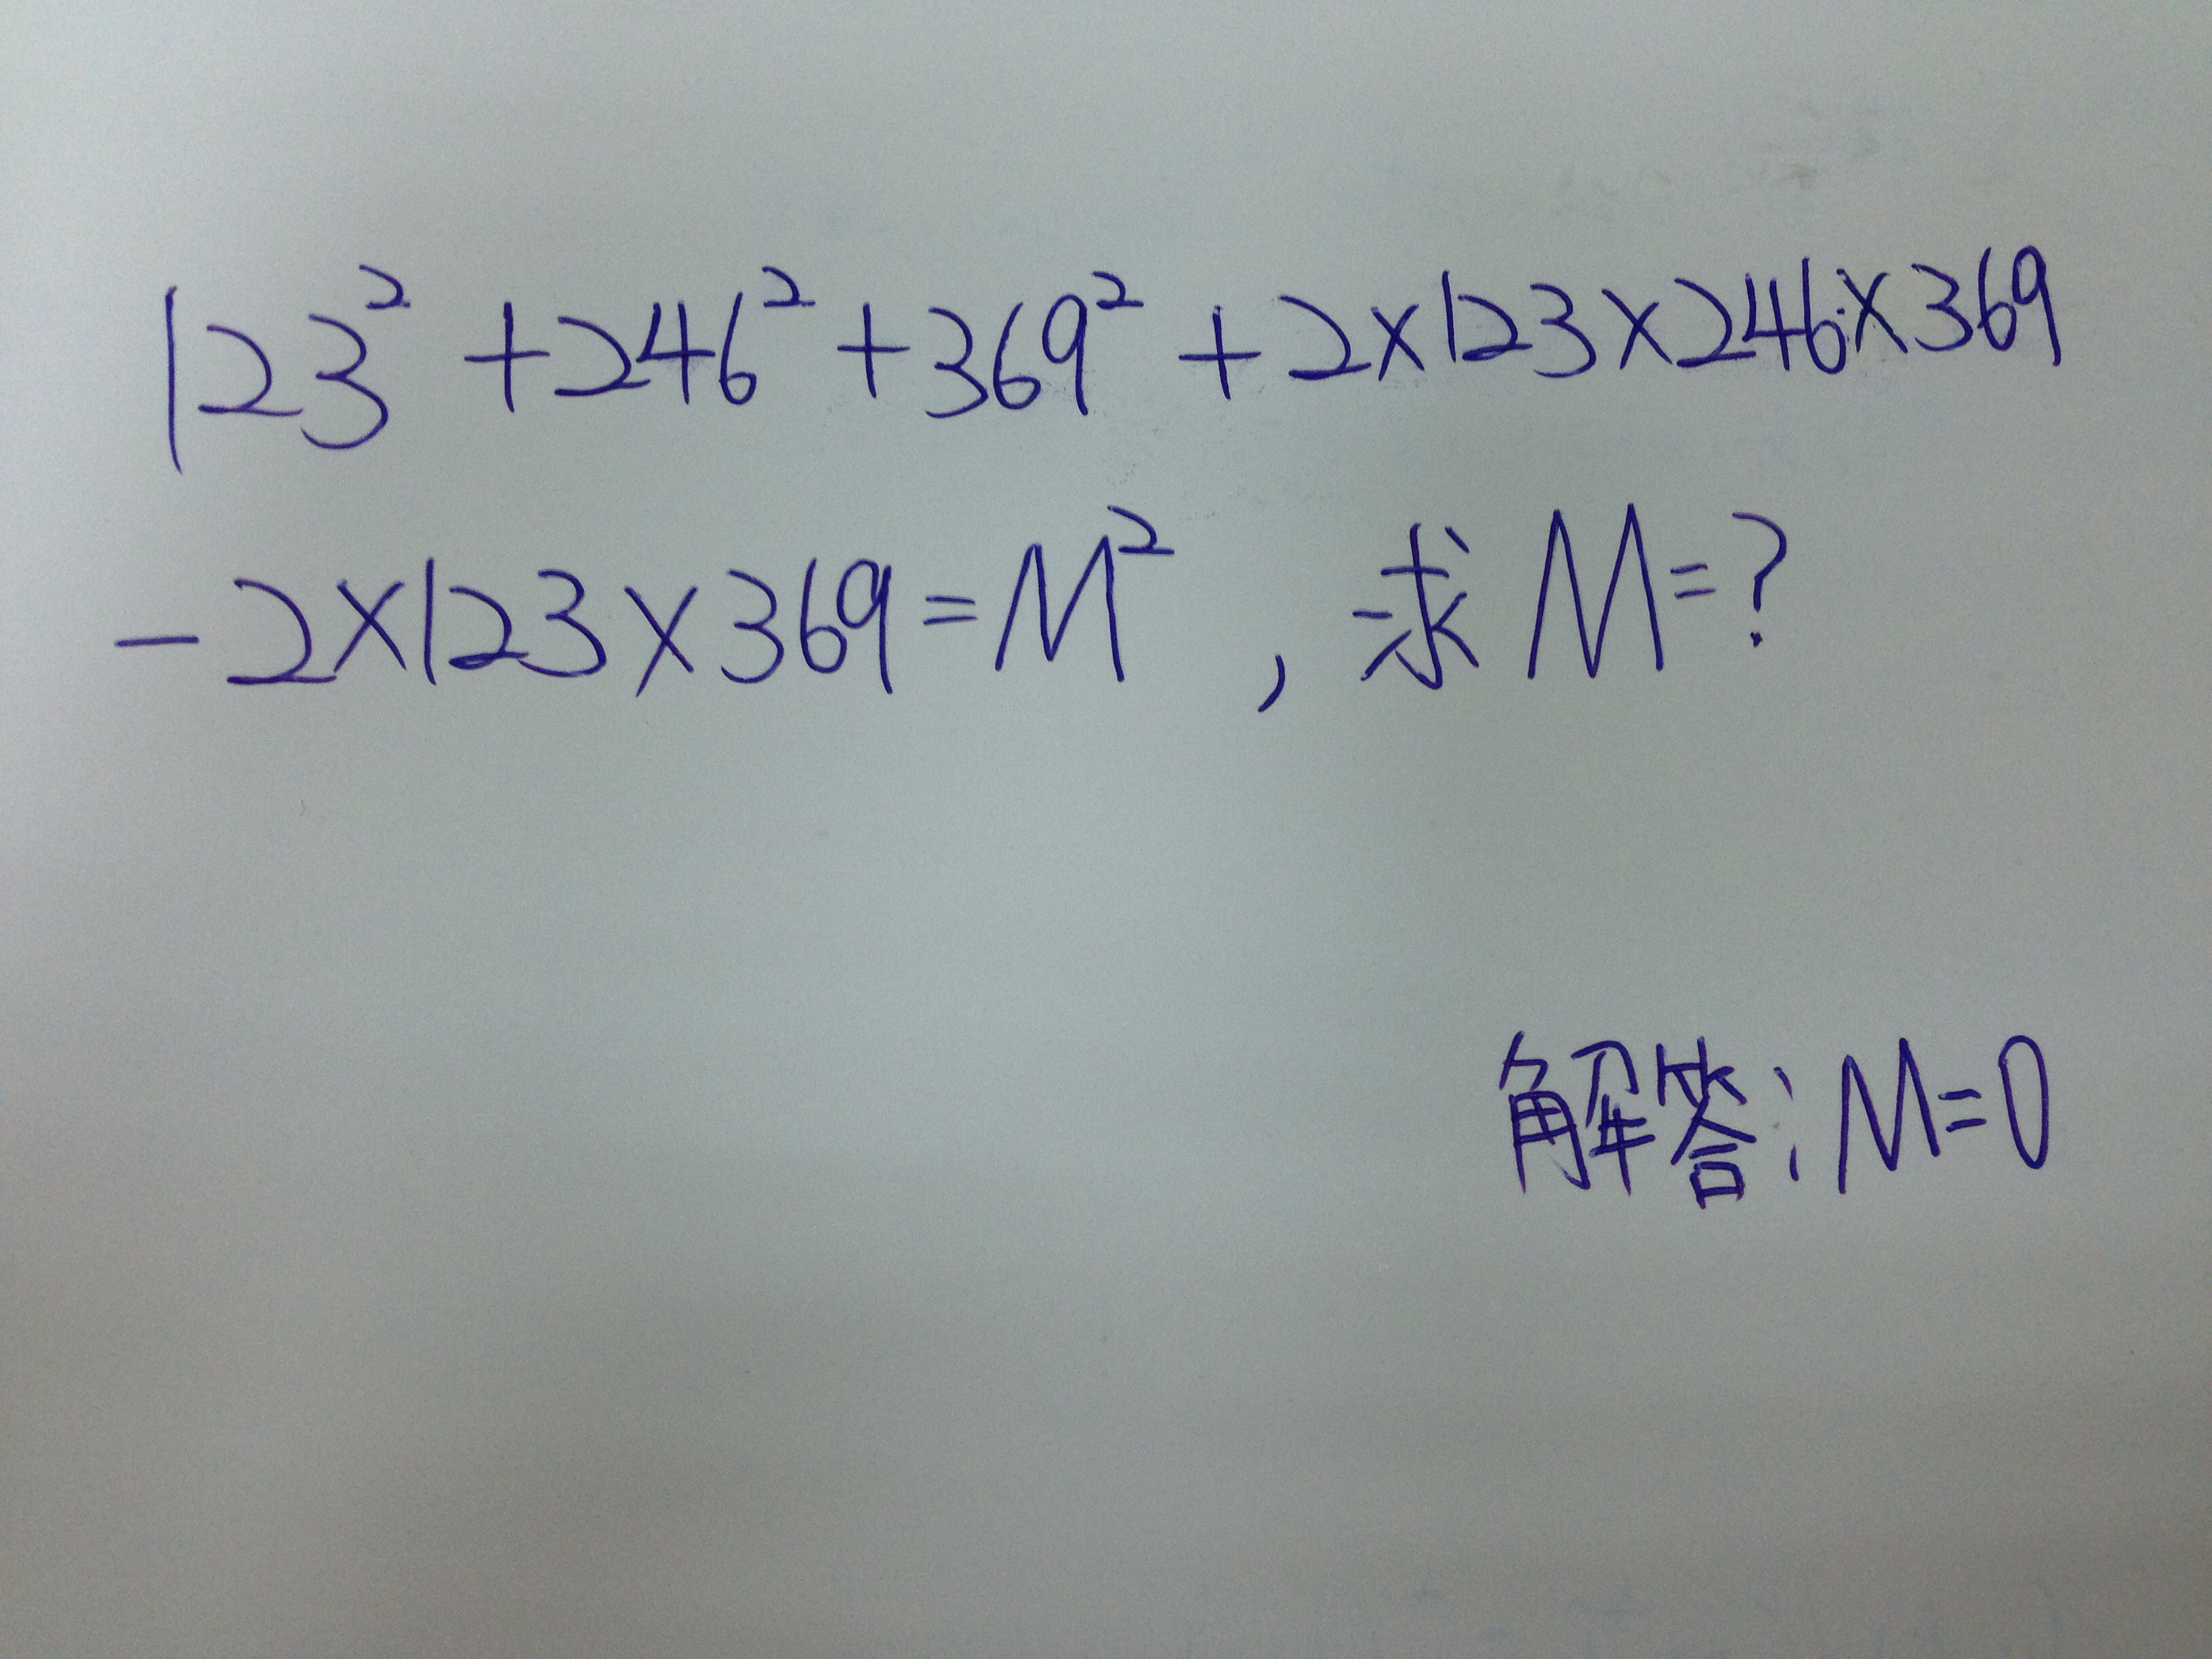 123² + 246² + 369² + 2×123×246×369
-2×123×369=M² , 求M=?
解答:M=0